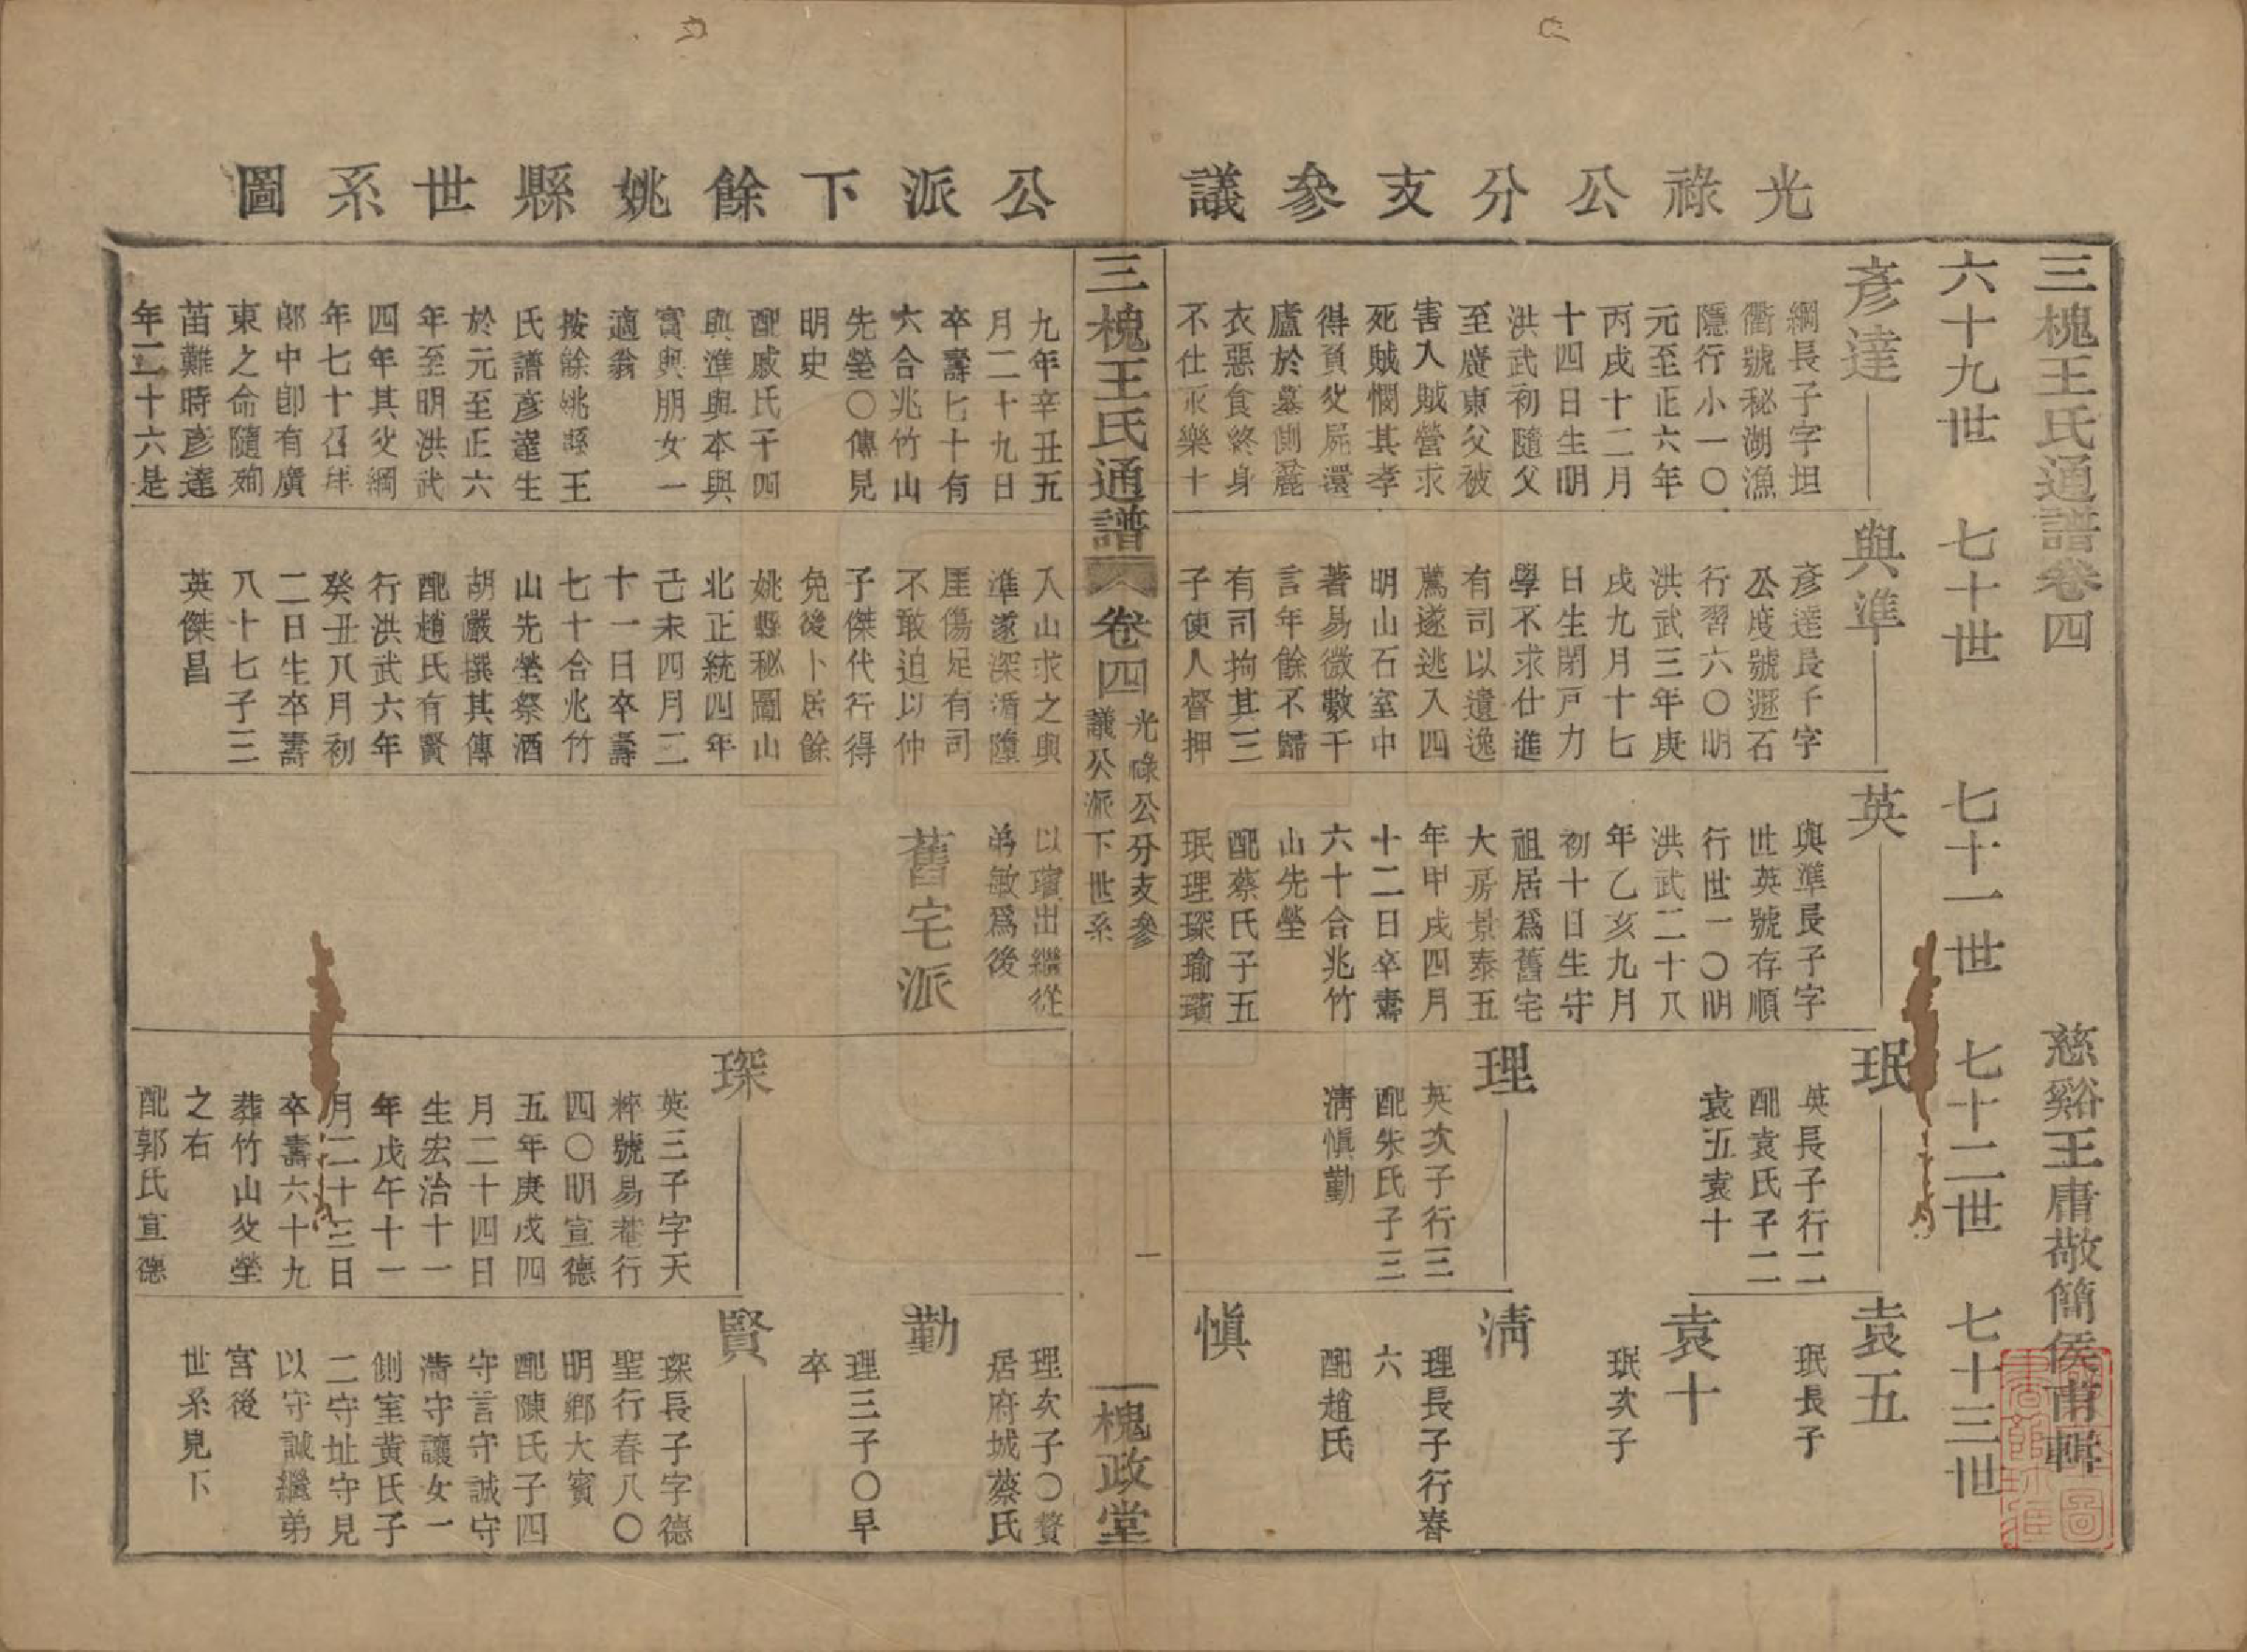 光祿公分支參議公派下餘姚縣世系圖
三槐王氏通譜卷四
慈谿王庸敬簡侯甫輯
六十九世
七十世
七十一世
七十二世
七十三世
彥達
綱長子字坦
衢號秘湖漁
隱行小一〇
元至正六年
丙戌十二月
十四日生明
洪武初隨父
至廣東父被
害入賊營求
死賊憫其孝
得負父屍還
廬於墓側麁
衣惡食終身
不仕永樂十
九年辛丑五
月二十九日
卒壽七十有
六合兆竹山
先塋〇傳見
明史
配戚氏子四
與準與本與
實與朋女一
適翁
按餘姚縣王
氏譜彥達生
於元至正六
年至明洪武
四年其父綱
年七十召拜
郎中卽有廣
東之命隨殉
苗難時彥達
年二十六是
與準
彥達長子字
公度號遯石
行習六〇明
洪武三年庚
戌九月十七
日生閉戸力
學不求仕進
有司以遺逸
薦遂逃入四
明山石室中
著易微數千
言年餘不歸
有司拘其三
子使人督押
入山求之與
準遂深遁墮
厓傷足有司
不敢迫以仲
子傑代行得
免後卜居餘
姚縣秘圖山
北正統四年
己未四月二
十一日卒壽
七十合兆竹
山先塋祭酒
胡嚴撰其傳
配趙氏有賢
行洪武六年
癸丑八月初
二日生卒壽
八十七子三
英傑昌
英
與準長子字
世英號存順
行世一〇明
洪武二十八
年乙亥九月
初十日生守
祖居爲舊宅
大房景泰五
年甲戌四月
十二日卒壽
六十合兆竹
山先塋
配蔡氏子五
珉理琛瑜璸
以璸出繼從
弟敏爲後
舊宅派
珉
英長子行二
配袁氏子二
袁五袁十
理
英次子行三
配朱氏子三
淸愼勤
琛
英三子字天
粹號易菴行
四〇明宣德
五年庚戌四
月二十四日
生宏治十一
年戊午十一
月二十三日
卒壽六十九
葬竹山父塋
之右
配郭氏宣德
袁五
珉長子
袁十
珉次子
淸
理長子行春
六
配趙氏
愼
理次子〇贅
居府城蔡氏
勤
理三子〇早
卒
賢
琛長子字德
聖行春八〇
明鄉大賓
配陳氏子四
守言守誠守
淸守讓女一
側室黃氏子
二守址守見
以守誠繼弟
宮後
世系見下
三槐王氏通譜
卷四
光祿公分支參
議公派下世系
一
槐政堂